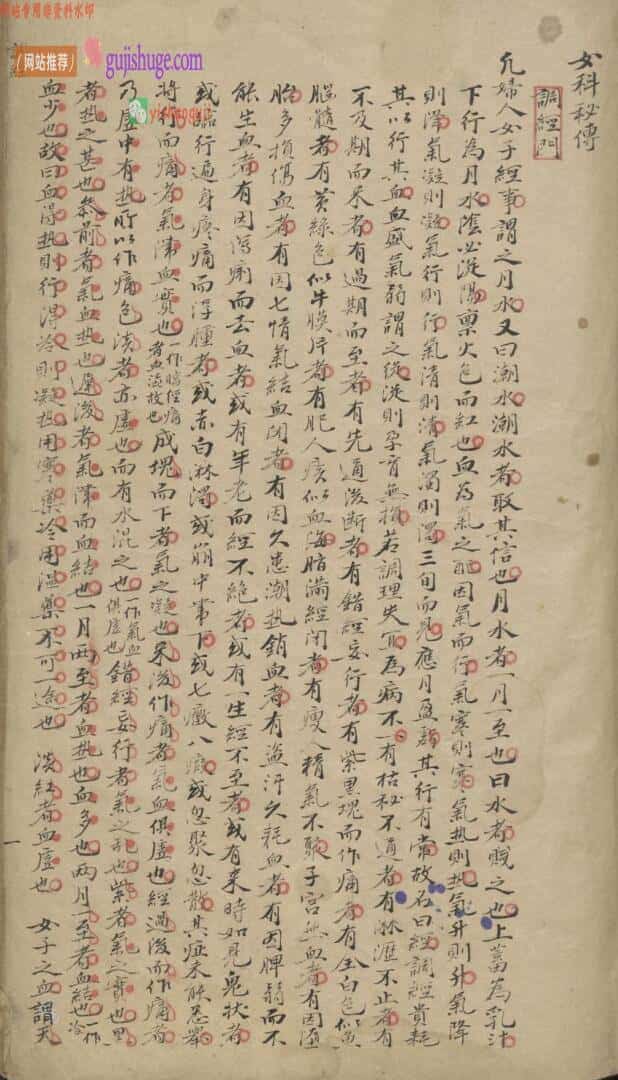 网站专用非资料水印
(网站推荐)
gujishuge.com
yishengui
女科秘傳
調經門
凡婦人女子經事謂之月水又曰潮水潮水者取其信也月水者一月一至也曰水者賤之也上蓄為乳汁
下行為月水陰必從陽稟火色而紅也血為氣之配因氣而行氣寒則寒氣热則热氣升則升氣降
則降氣凝則凝氣行則行氣清則清氣濁則濁三旬而見應月盈虧其行有常故名曰經調經貴耗
其以行其血血盛氣弱謂之從從則孕育無損若調理失宜為病不一有枯秘不通者有淋瀝不止者有
不及期而来者有過期而至者有先通後断者有錯經妄行者有紫黑塊而作痛者有全白色似
腦髓者有黃綠色似牛膜片者有肥人痰似血海脂滿經闭者有瘦人精氣不聚子宮無血者有因墮
胎多損傷血者有因七情氣結血闭者有因久患潮热銷血者有盜汗久耗血者有因脾弱而不
能生血者有因瀉痢而去血者或有年老而經不絕者或有一生經不至者或有来時如見鬼状者
或臨行遍身疼痛而浮腫者或赤白淋濁或崩中帶下或七癥八瘕或忽聚忽散其症未能悉舉
將行而痛者氣滯血實也 成塊而下者氣之凝也来後作痛者氣血俱虛也經過後而作痛者
乃虛中有热所以作痛色淡者亦虛也而有水混之也一作氣血俱虛也錯經妄行者氣之乱也紫者氣之實也黑
者热之甚也叅前者氣血热也退後者氣滯而血結也一月两至者血热也血多也两月一至者血結也
血少也故曰血得热則行得冷則凝热用寒藥冷用温藥不可一途也 淡紅者血虛也 女子之血謂天
一